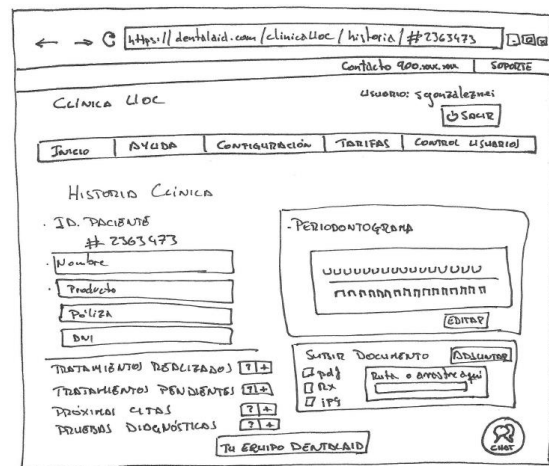 https://dentalaid.com/clinicauoc/historia/#2363473
Contacto 900.xxx.xxx | SOPORTE
CLINICA UOC
USUARIO: sgonzaleznei
SALIR
INICIO | AYUDA | CONFIGURACIÓN | TARIFAS | CONTROL USUARIOS
HISTORIA CLÍNICA
· ID. PACIENTE
# 2363473
· Nombre
· Producto
Póliza
DNI
TRATAMIENTOS REALIZADOS ? +
TRATAMIENTOS PENDIENTES ? +
PRÓXIMAS CITAS ? +
PRUEBAS DIAGNÓSTICAS ? +
- PERIODONTOGRAMA
EDITAR
SUBIR DOCUMENTO ADJUNTAR
pdf
Rx
jpg
Ruta o arrastre aquí
TU EQUIPO DENTALAID
CHAT